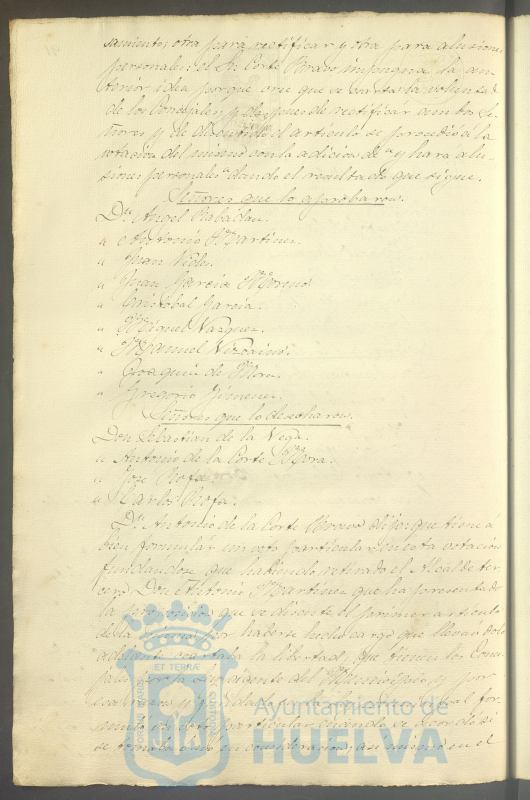 samiento; otra para rectificar y otra para alusiones
personales: el Sr. Corte Bravo impugna la an-
terior idea porque cree que se coarta la voluntad
de los Concejales, y despues de rectificar ambos Se-
ñores y de discutido el articulo se procedió á la
votacion del mismo con la adicion de "y para alu-
siones personales" dando el resultado que sigue.
Señores que lo aprobaron.
Dn. Angel Rabadan.
" Antonio Martinez
" Juan
" Juan Garcia Moreno
" Cristobal Garcia.
" Miguel Vazquez.
" Manuel Vizcaino.
" Joaquin de Mora.
" Gregorio Jimenez.
Señores que lo desecharon.
Don Sebastian de la Vega.
" Antonio de la Corte
" José Rofa
" Carlos Rofa.
Dn. Antonio de la Corte Bravo dijo: que tiene á
bien formular un voto particular en esta votacion
fundandose que habiendo retirado el Alcalde ter-
cero Don Antonio Martinez que ha presentado
la que se discute el primer articulo
de la por haberse hecho cargo que llevandolo
adelante coartaba la libertad que tienen los Conce-
jales
formuló
se tomaba en consideracion, asi mismo en el
ET TERRÆ
Ayuntamiento de
HUELVA